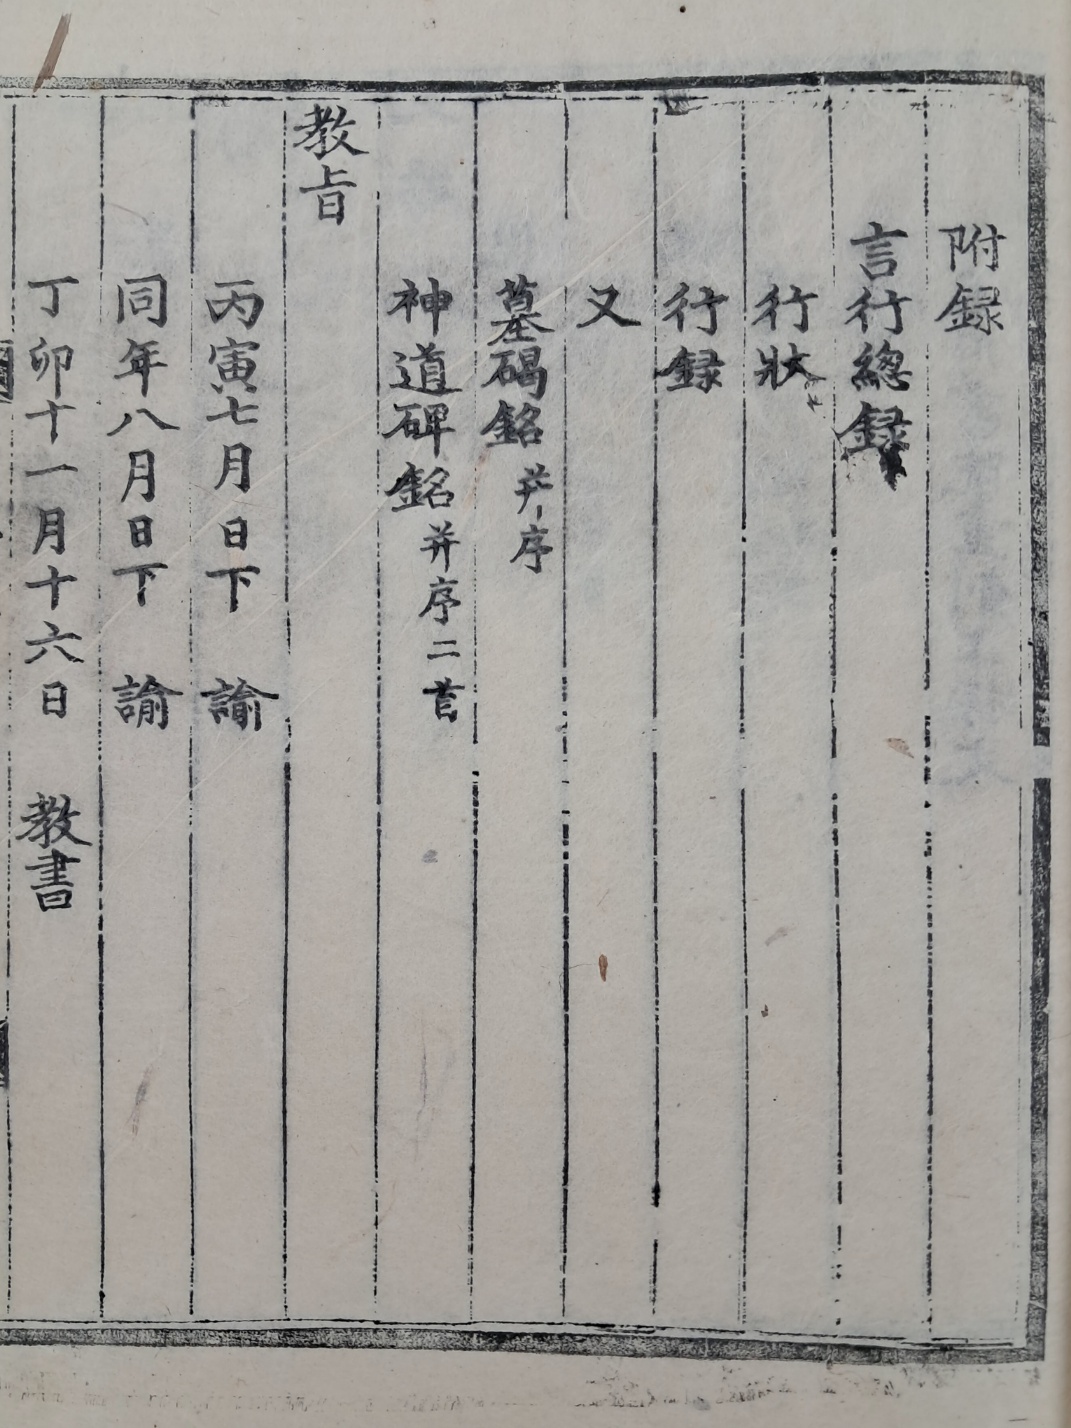 附録
言行總録
行狀
行録
又
墓碣銘 并序
神道碑銘 并序二首
教旨
丙寅七月日下 諭
同年八月日下 諭
丁卯十一月十六日 教書